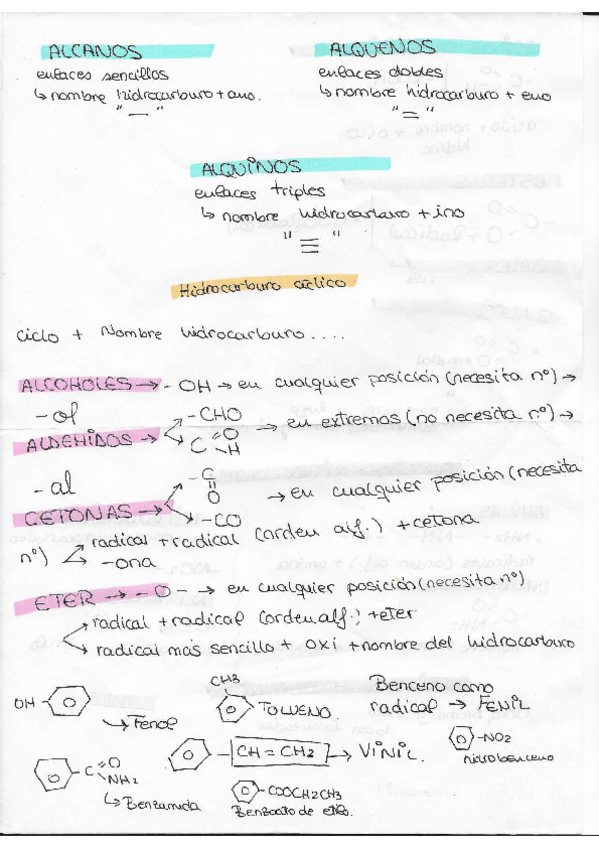 ALCANOS
enlaces sencillos
↳ nombre hidrocarburo + ano.
" — "
ALQUENOS
enlaces dobles
↳ nombre hidrocarburo + eno
" = "
ALQUINOS
enlaces triples
↳ nombre hidrocarburo + ino
" ≡ "
Hidrocarburo cíclico
Ciclo + Nombre hidrocarburo....
ALCOHOLES → - OH → en cualquier posición (necesita nº) →
- ol
ALDEHIDOS → - CHO → en extremos (no necesita nº) →
C O H
- al
CETONAS → - C O → en cualquier posición (necesita
- CO
nº) radical + radical (orden alf.) + cetona
- ona
ETER → - O - → en cualquier posición (necesita nº)
radical + radical (orden alf.) + eter
radical más sencillo + oxi + nombre del hidrocarburo
OH -
↳ Fenol
CH3
TOLUENO.
Benceno como
radical → FENIL
- CH = CH2 → VINIL.
- NO2
nitrobenceno
- C O NH2
↳ Benzamida
- COOCH2CH3
Benzoato de etilo.